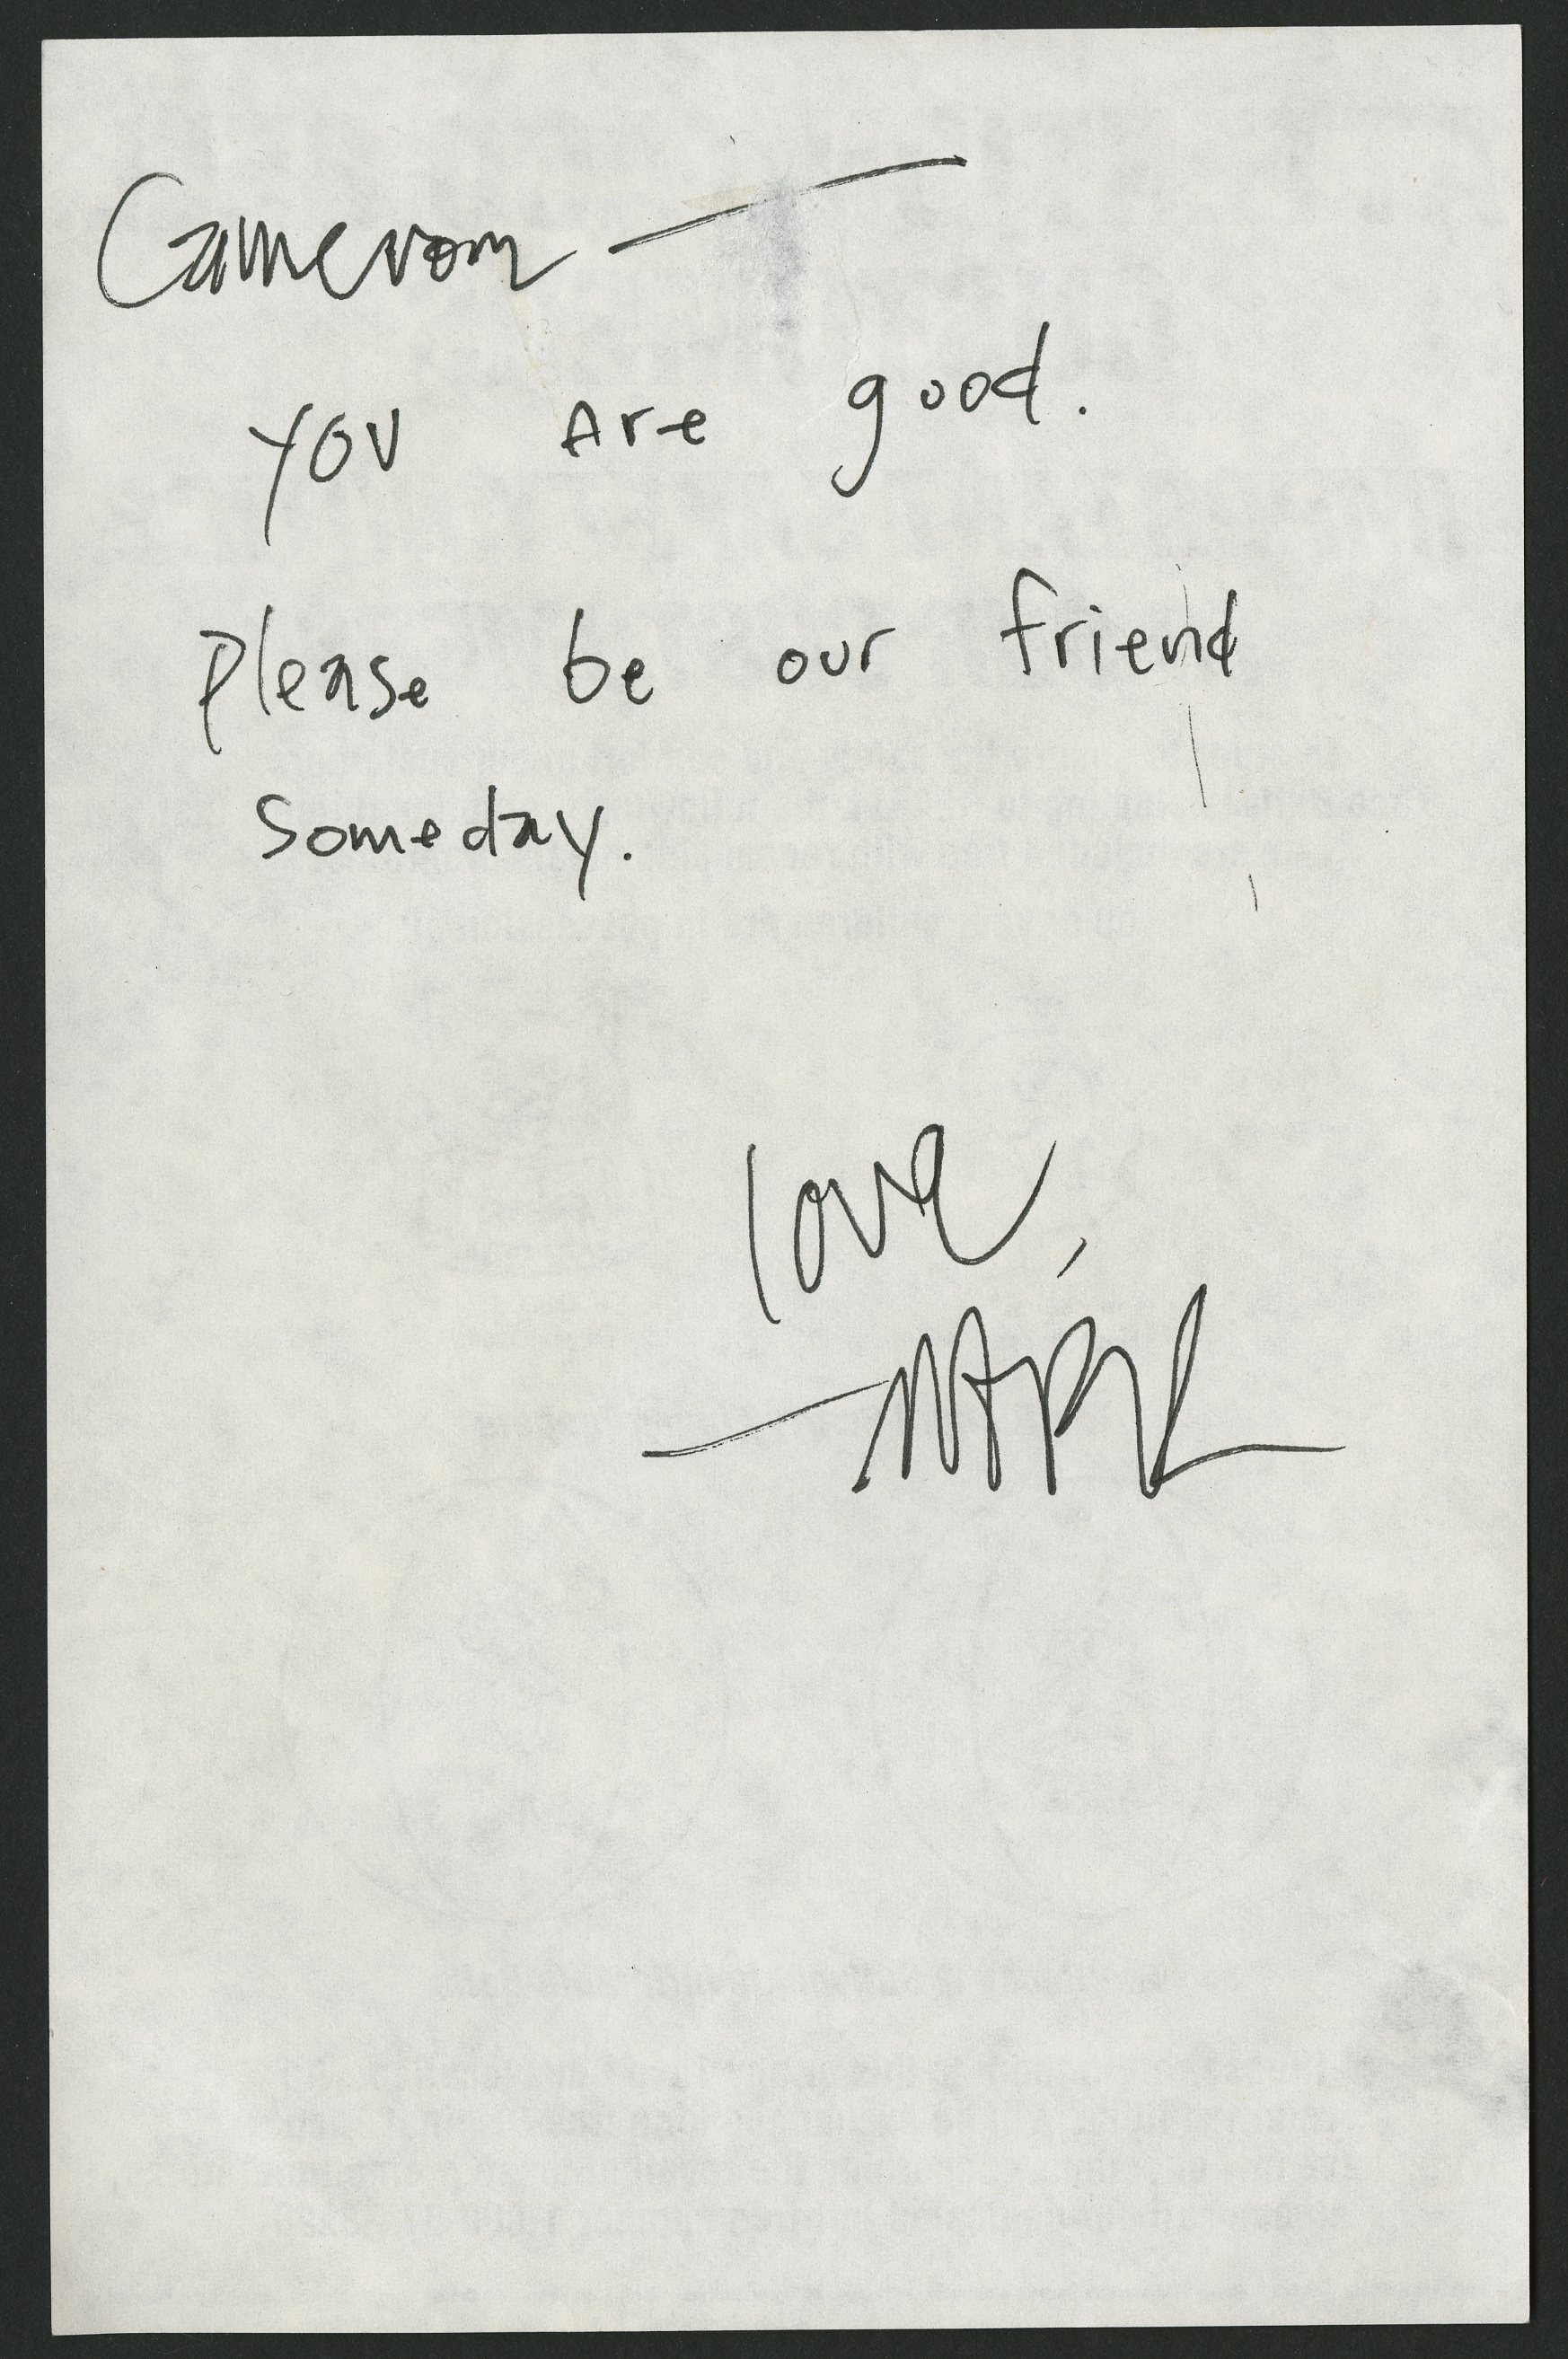 Cameron —
you are good.
Please be our friend
someday.
love,